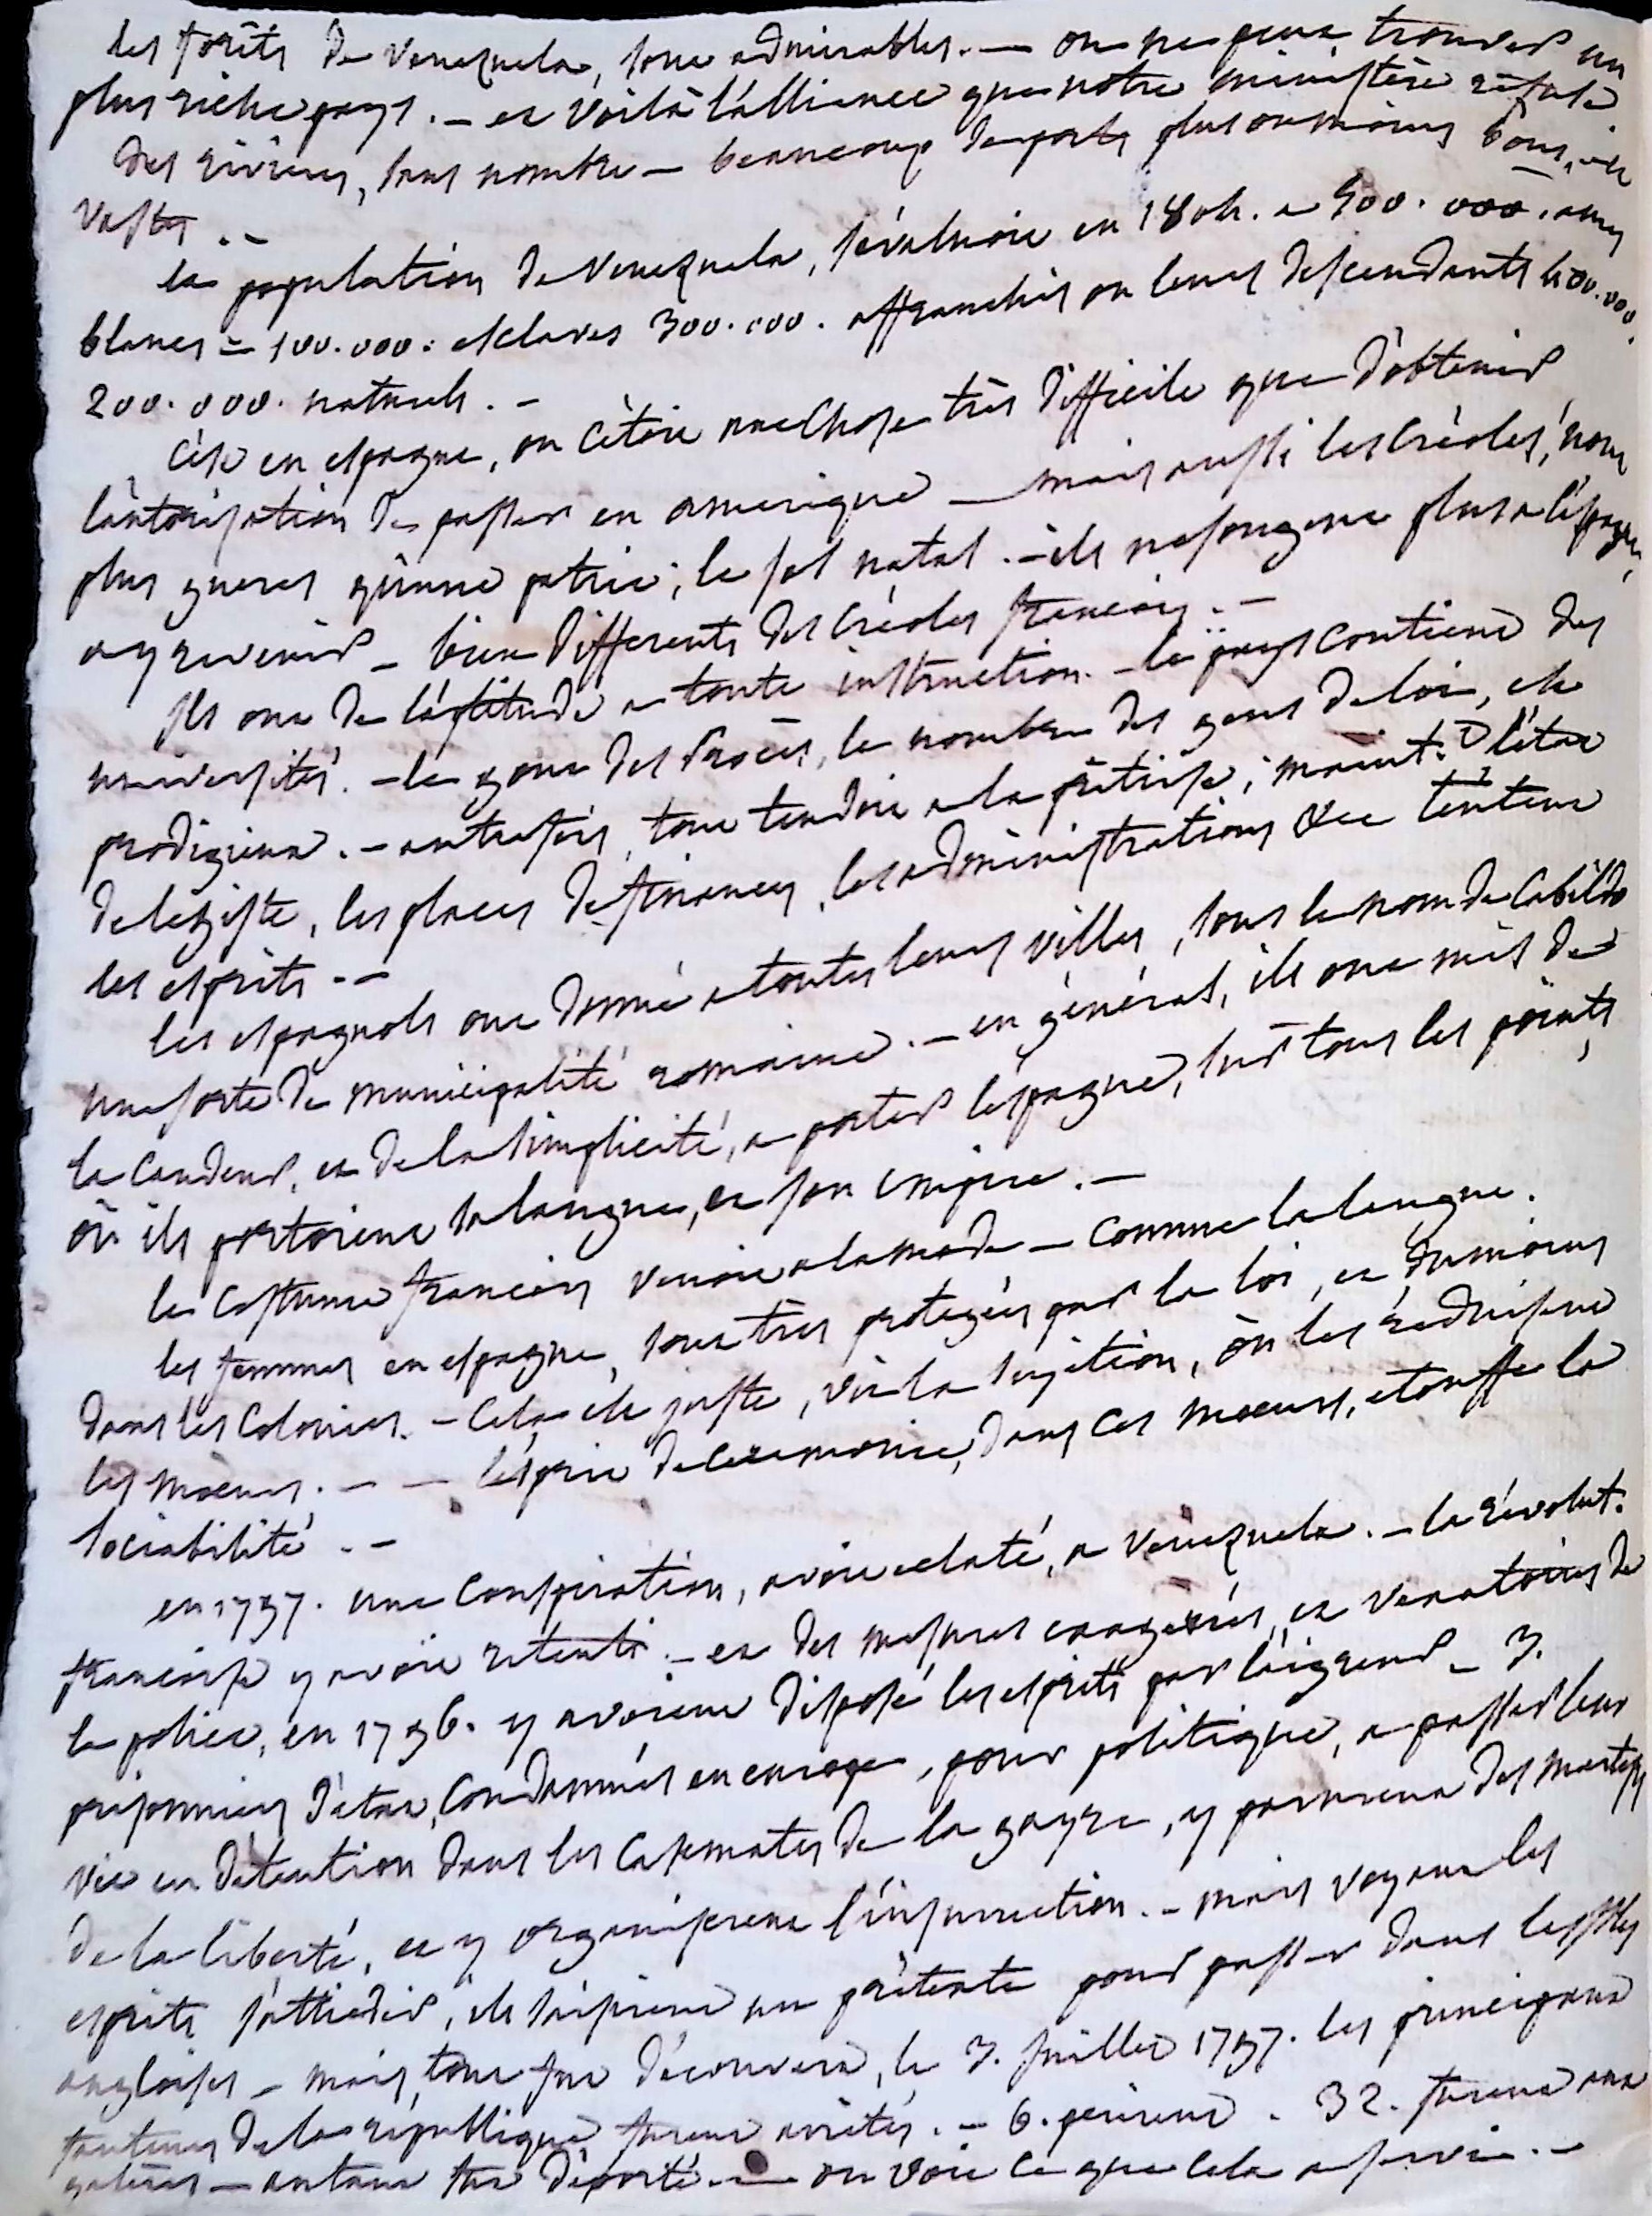 les forêts de Venezuela, sont admirables. — on ne peut trouver un
plus riche pays. — et voilà l'alliance que notre ministère refuse
des rivières, sans nombre — beaucoup de ports plus ou moins bons, et
vastes. —
la population de Venezuela, s'évaluoit en 1804. a 900.000. ames
blancs = 100.000: esclaves 300.000. affranchis ou leurs descendants 400.000.
200.000. naturels. —
C'est en espagne, ou c'étoit une chose très difficile que d'obtenir
l'autorisation de passer en amerique — mais aussi les Créoles, n'ont
plus gueres qu'une patrie; le sol natal. — ils ne songent plus a l'espagne,
a y revenir — bien differents des Créoles francois. —
Ils ont de l'aptitude a toute instruction. — le pays contient des
universités. — le gout des Procès, le nombre des gens de loi, est
prodigieux. — autrefois, tout tendoit a la prêtrise; maint.t l'état
de légiste, les places de finances, les administrations &cc tentent
les esprits. —
les espagnols ont donné a toutes leurs villes, sous le nom de Cabildo
une sorte de municipalité romaine. — en général, ils ont mis de
la candeur, et de la simplicité, a porter l'espagne, sur tous les points
où ils portoient sa langue, et son empire. —
le costume francois venoit a la mode — comme la langue.
les femmes en espagne, sont très protegées par la loi, et, du moins
dans les Colonies. — Cela est juste, vû la sujétion, où les réduisent
les moeurs. — — l'esprit de ceremonie, dans ces moeurs, etouffe la
sociabilité. —
en 1797. une Conspiration, avoit eclaté, a Venezuela. — la révolut.
francoise y avoit retenti. — et des mesures exagerées, et vexatoires de
la police, en 1796. y avoient disposé les esprits par l'aigreur — 3.
prisonniers d'état, Condamnés en europe, pour politique, a passer leur
vie en détention dans les Casemates de la gayra, y parurent des martyrs
de la liberté, et y organiserent l'insurrection. — mais voyant les
esprits s'attiedir, ils saisirent un prétexte pour passer dans les isles
angloises — mais, tout fut découvert, le 3. juillet 1797. les principaux
fauteurs de la république furent arrêtés. — 6. périrent. 32. furent aux
galères — autant fut déporté. — on voit ce que cela a servi. —